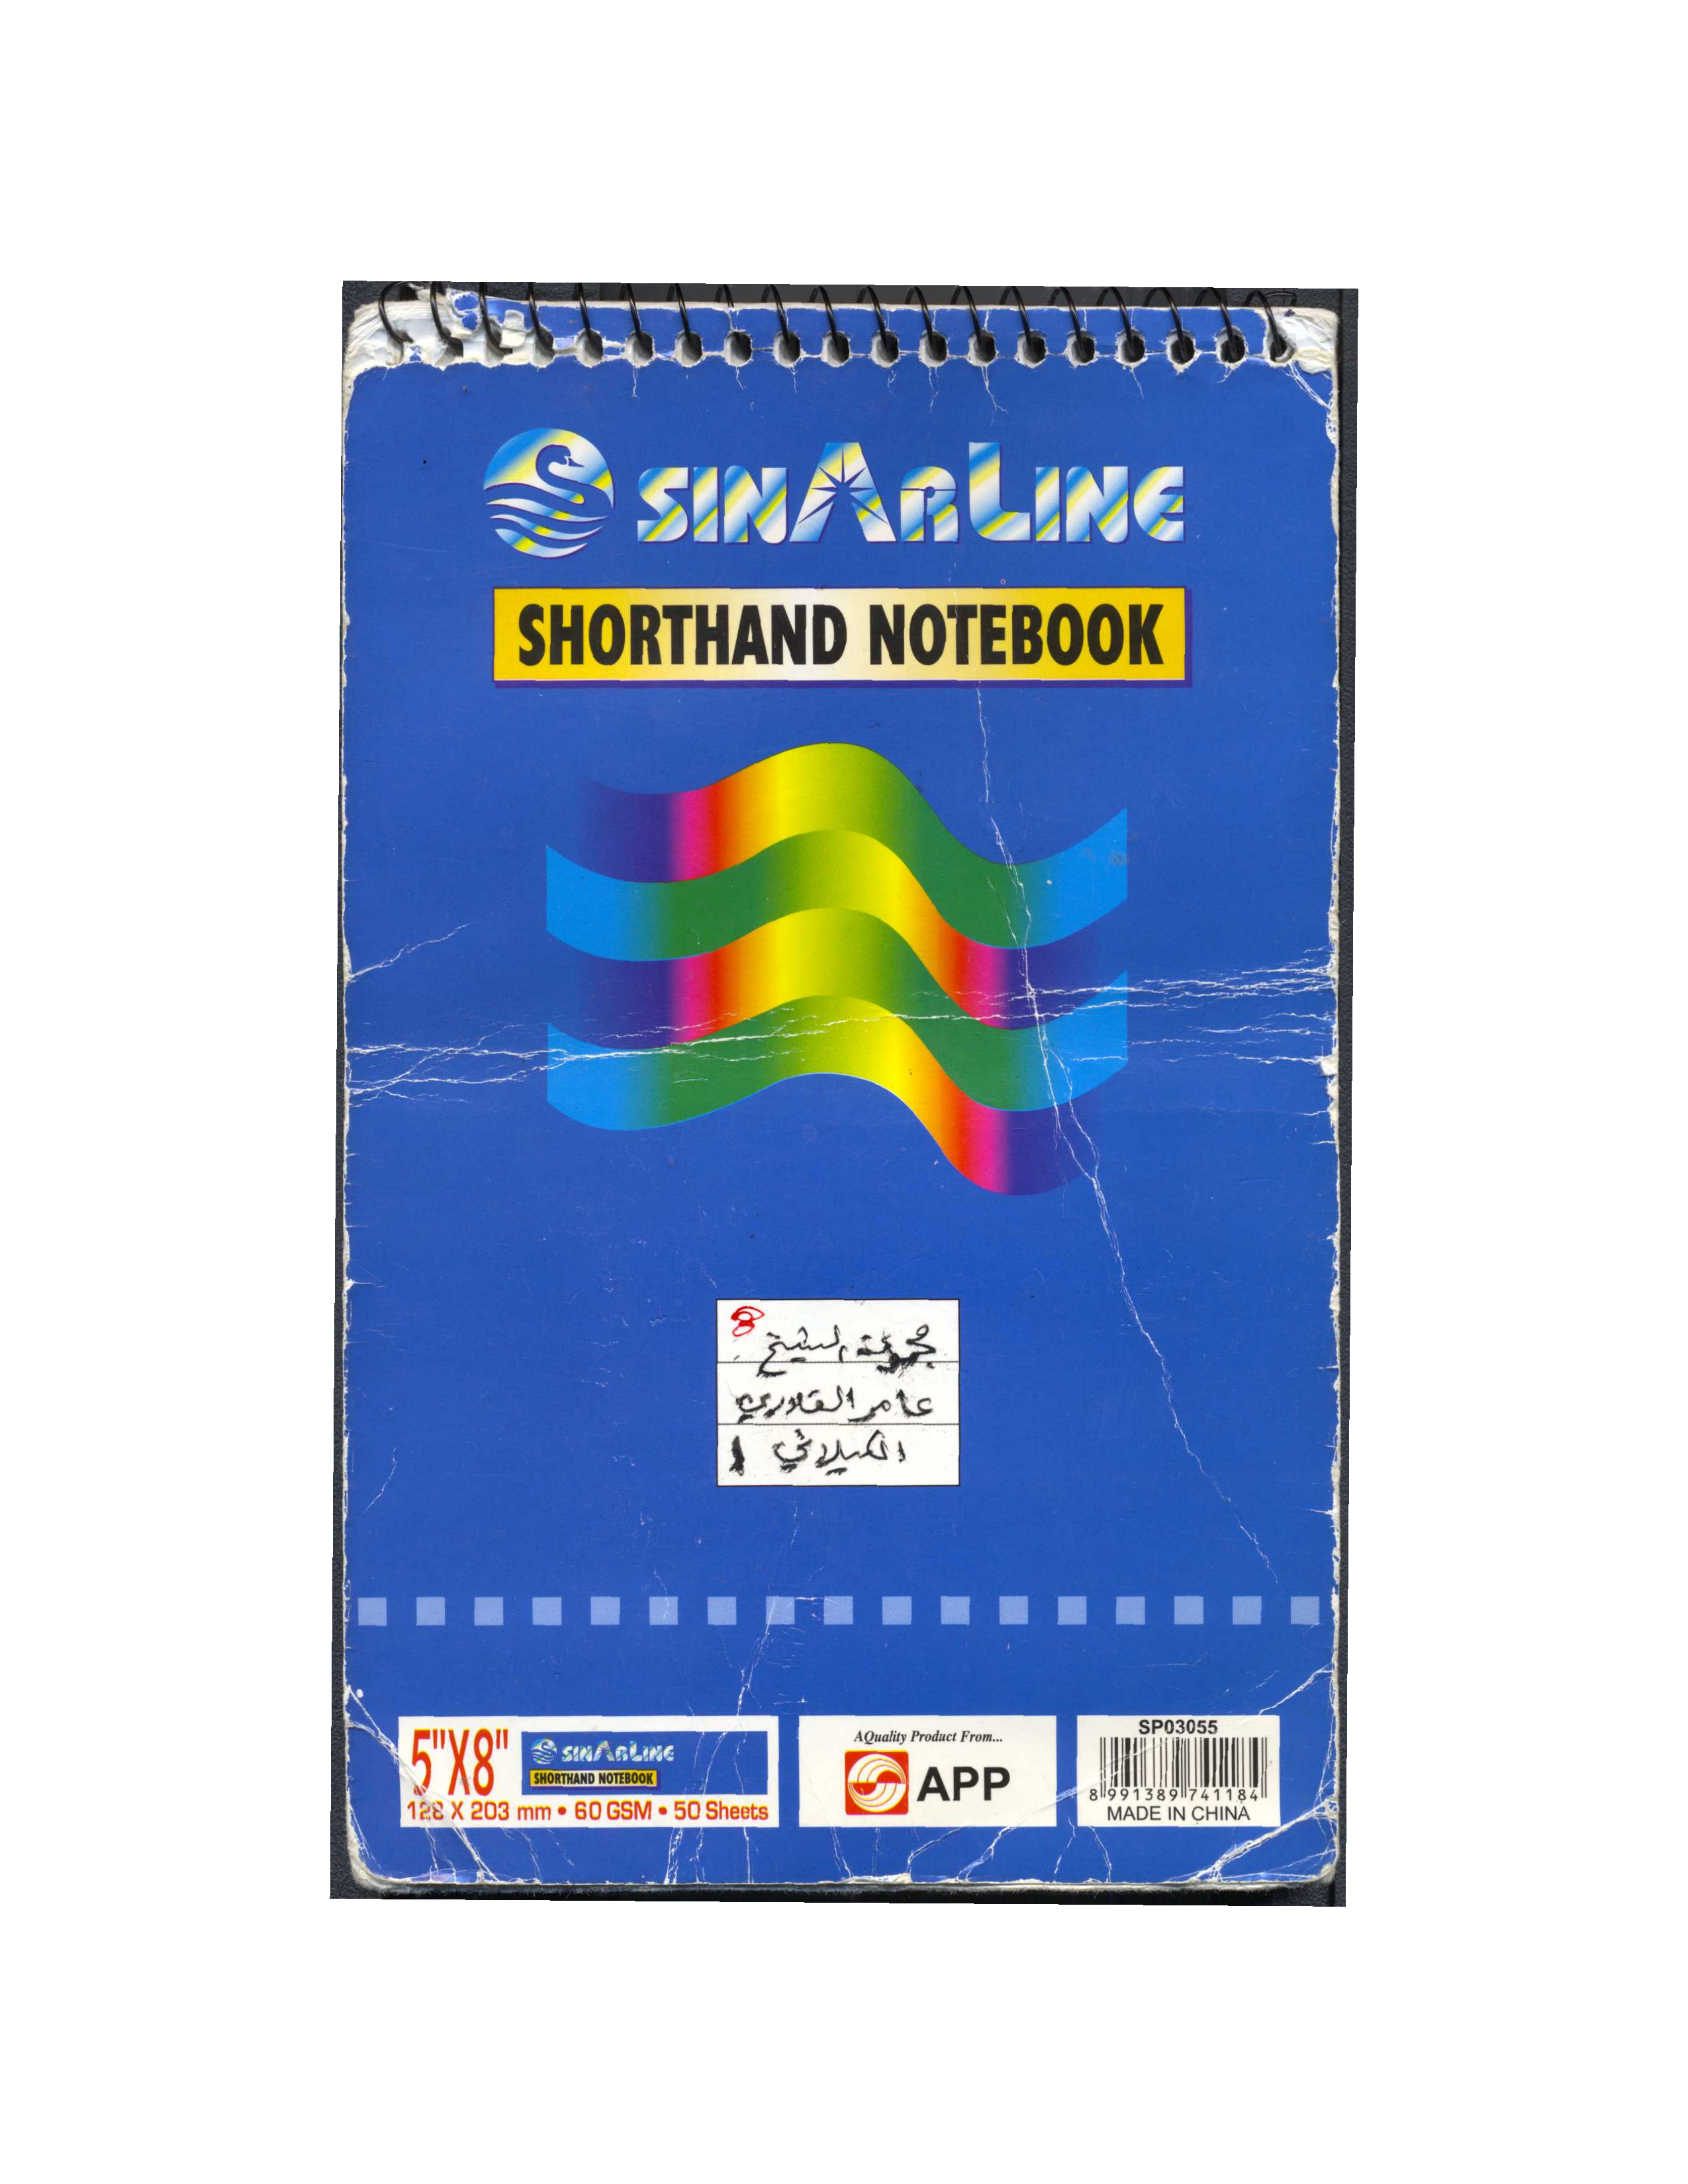 SINARLINE
SHORTHAND NOTEBOOK
8
مجموعة الشيخ
عامر القادري
الكيلاني 1
5"X8"
SINARLINE
SHORTHAND NOTEBOOK
128 X 203 mm • 60 GSM • 50 Sheets
AQuality Product From...
APP
SP03055
8 991389 741184
MADE IN CHINA